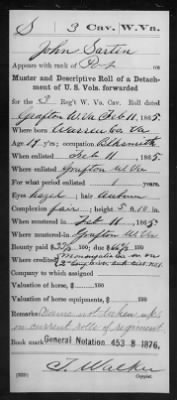 S 3 Cav. W.Va.
John Sartin
Appears with rank of Pvt on
Muster and Descriptive Roll of a Detach-
ment of U. S. Vols. forwarded
for the 3 Reg't W. Va. Cav. Roll dated
Grafton W. Va Feb 11, 1865
Where born Warren Co Va
Age 19 y's; occupation Blksmith
When enlisted Feb 11, 1865
Where enlisted Grafton W Va
For what period enlisted 1 years
Eyes hazel; hair auburn
Complexion fair; height 5 ft. 10 in.
When mustered in Feb 11, 1865
Where mustered in Grafton W Va
Bounty paid $ 100; due $ 100
Where credited Monongalia Co
Company to which assigned
Valuation of horse, $ 100
Valuation of horse equipments, $ 100
Remarks: Name not taken up
on current rolls of regiment
Book mark: General Notation 453 B 1876.
Walker
Copyist.